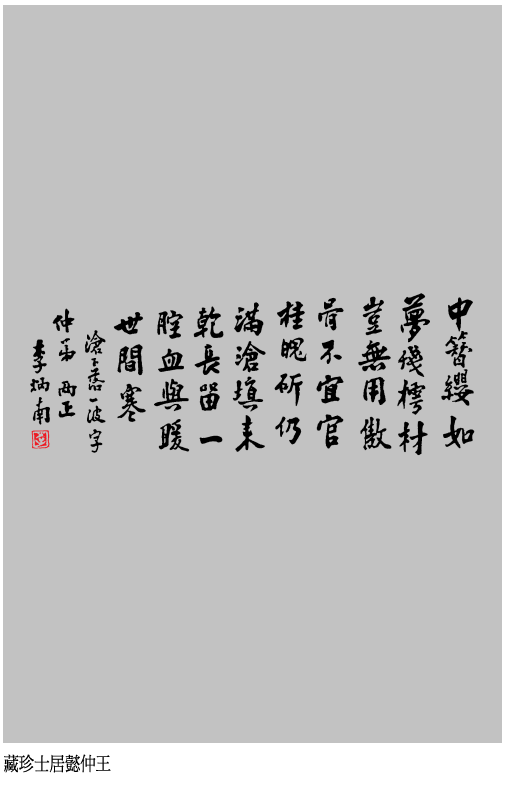 中簪纓如
夢殘樗材
豈無用傲
骨不宜官
桂魄斫仍
滿滄填未
乾長留一
腔血與暖
世間寒
滄下一波字
仲弟正
李炳南
王仲懿居士珍藏